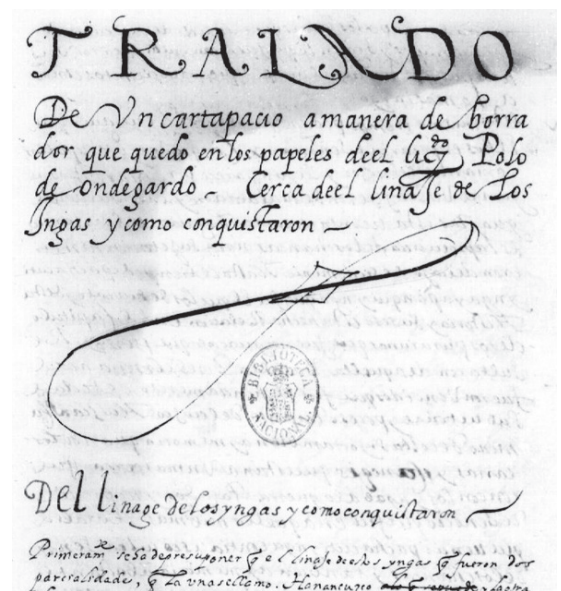 TRALADO
De Vn cartapacio amanera de borra
dor que quedo en los papeles deel licdo Polo
de ondegardo – Cerca deel linaJe de Los
Jngas y como conquistaron –
BIBLIOTECA
NACIONAL
Del linage de los yngas y como conquistaron
Primeramte se a de presuponer q̃ el linaje destos yngas q̃ fueron dos
parcialidades, q̃ La vna se llamo. Hanancuzco y la otra